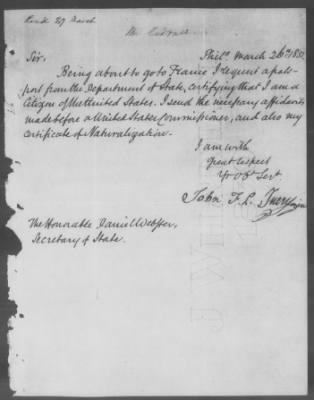 Recd 27 March
Phila March 26th 1851
Sir.
Being about to go to France, I request a pass-
port from the Department of State, certifying that I am a
Citizen of the United States. I send the necessary affidavits
made before a United States Commissioner, and also my
certificate of Naturalization.
I am with
great respect
Yr Ob Sert
John F. L.
The Honorable Daniel Webster,
Secretary of State.